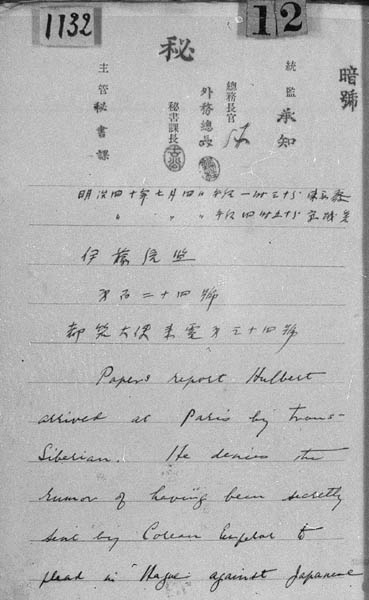 1132
12
秘
暗號
統監 承知
總務長官
外務總長
秘書課長
主管 秘書課
明治四十年七月四日 午后一時三十分 東京發
〃 〃 〃 午后四時五十分 京城着
伊藤統監
第百二十四號
都筑大使来電第三十四號
Papers report Hulbert
arrived at Paris by trans-
Siberian. He denies the
rumor of having been secretly
sent by Corean Emperor to
plead in Hague against Japanese